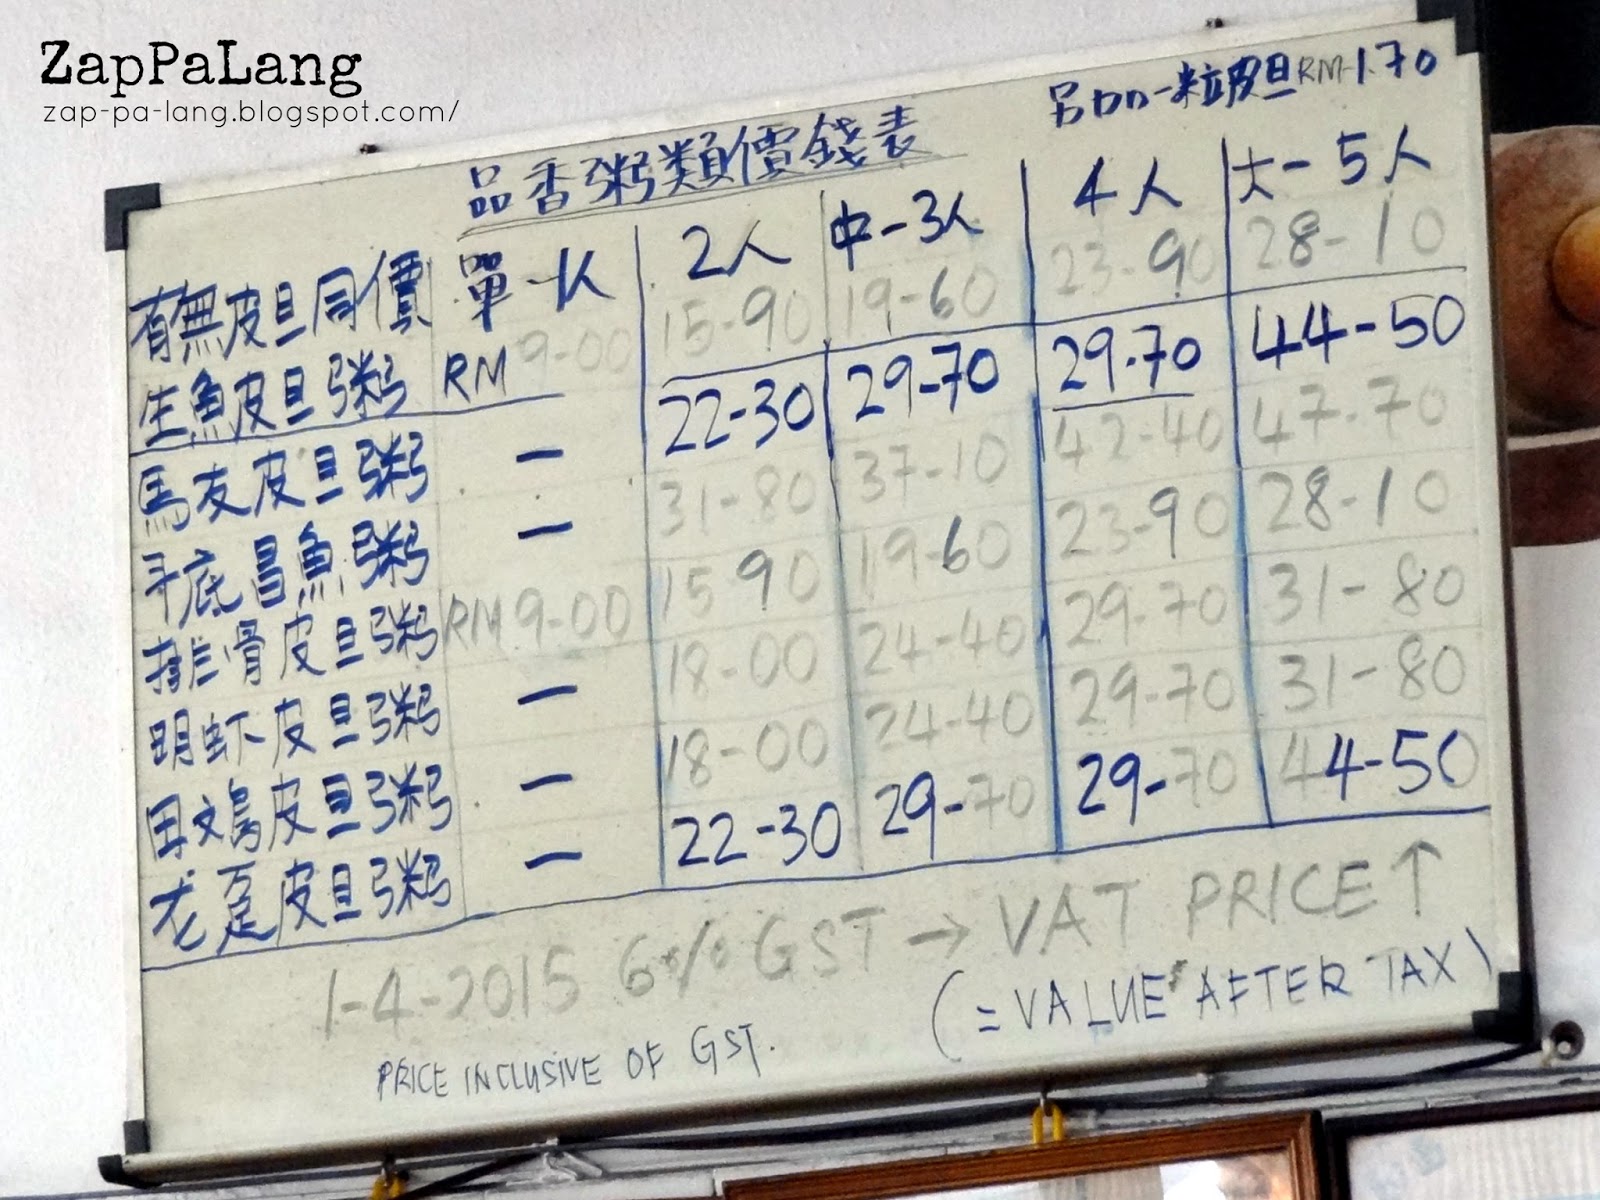 ZapPaLang
zap-pa-lang.blogspot.com/
另加一粒皮旦RM1.70
品香粥類價錢表
有無皮旦同價 單一人 2人 中-3人 4人 大-5人
生魚皮旦粥 RM 9-00 15-90 19-60 23-90 28-10
馬友皮旦粥 - 22-30 29-70 29.70 44-50
斗底昌魚粥 - 31-80 37-10 42-40 47-70
排骨皮旦粥 RM9-00 15 90 19-60 23-90 28-10
明虾皮旦粥 - 18-00 24-40 29-70 31-80
田鸡皮旦粥 - 18-00 24-40 29-70 31-80
龙趸皮旦粥 - 22-30 29-70 29-70 44-50
1-4-2015 6% GST → VAT PRICE ↑
(= VALUE AFTER TAX)
PRICE INCLUSIVE OF GST.